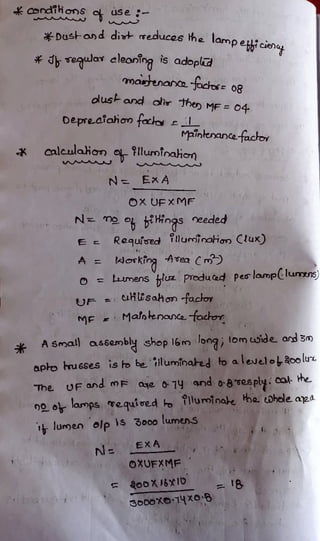 * conditions of use :-
* Dust and dirt reduces the lamp efficiency
* If regular cleaning is adopted
maintenance factor = 08
dust and dir then MF = 04
Depreciation factor = 1
Maintenance factor
* calculation of illumination
N = E×A
O× UF×MF
N = no of fittings needed
E = Required illumination (lux)
A = Working Area (m²)
O = Lumens flux produced per lamp (lumens)
UF = Utilisation factor
MF = Maintenance factor
* A small assembly shop 16m long, 10m wide and 3m
upto trusses is to be illuminated to a level of 200lux
The UF and MF are 0.74 and 0.8 resply. Cal. the
no of lamps required to illuminate the whole area
if lumen o/p is 3000 lumens
N = E×A
O×UF×MF
= 400×16×10 = 18
3000×0.74×0.8